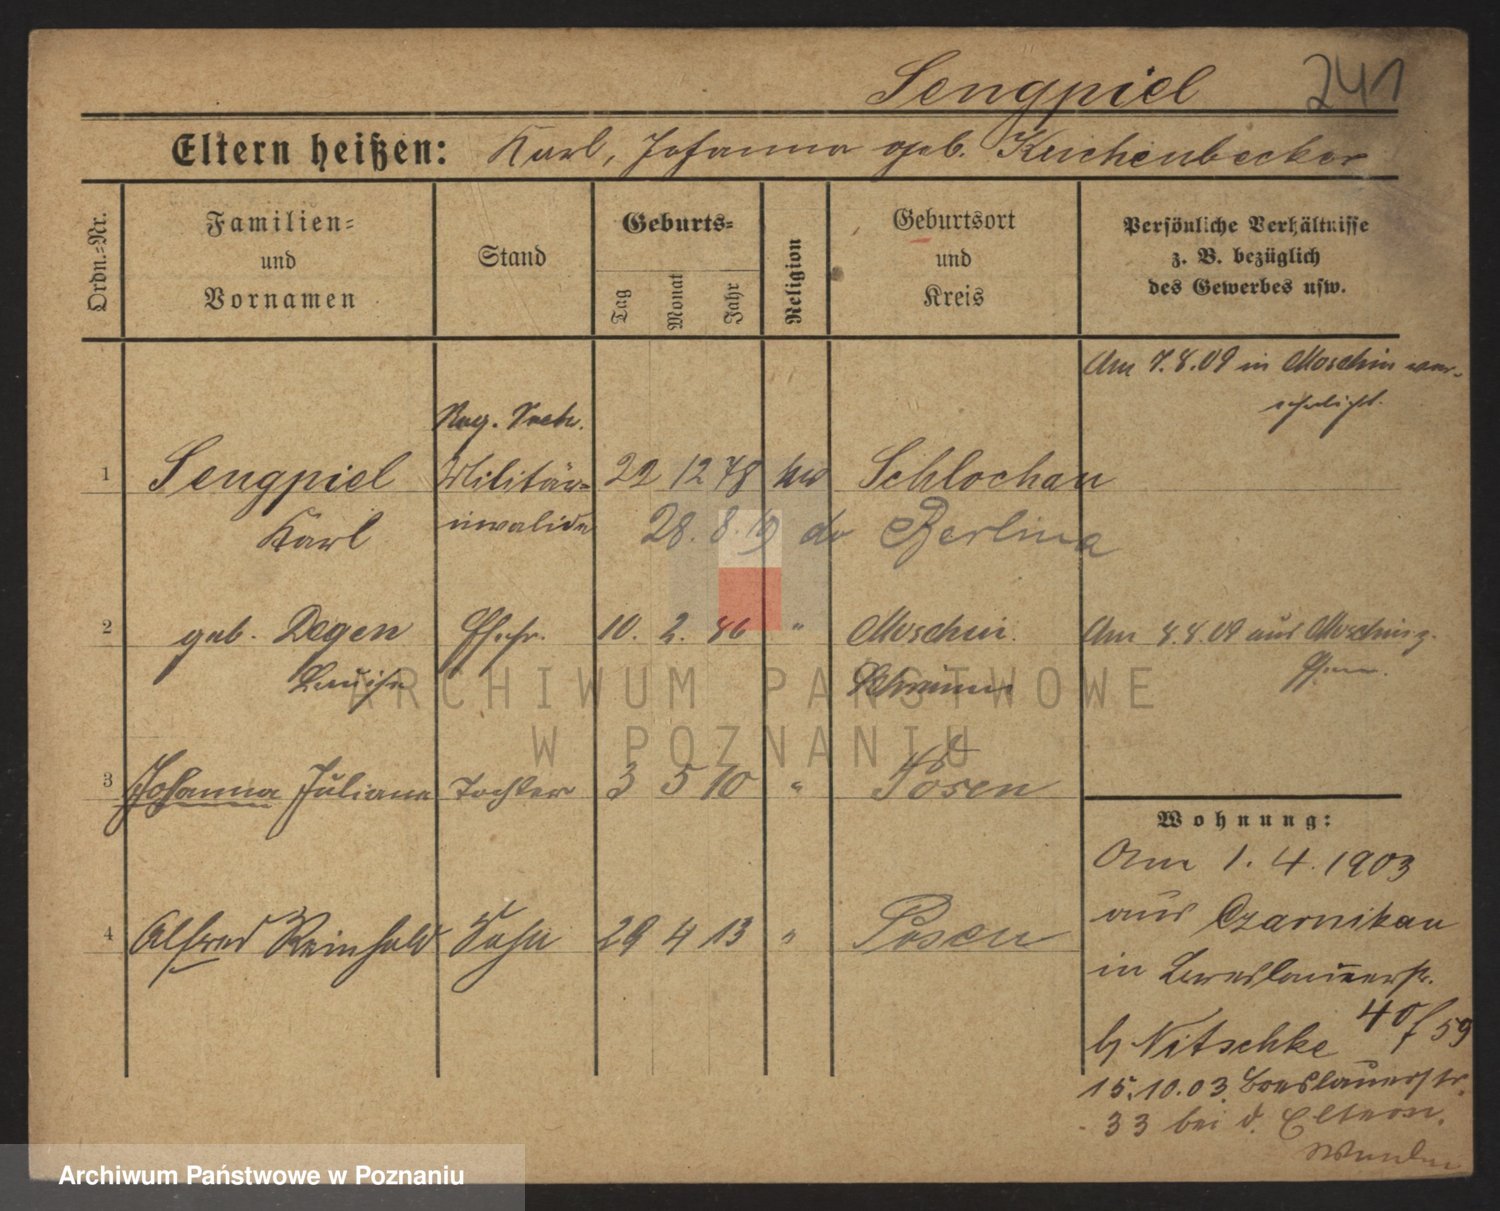 Sengpiel 241
Eltern heißen: Karl, Johanna geb. Kuchenbecker
Ordn.-Nr.
Familien-
und
Vornamen
Stand
Geburts-
Tag
Monat
Jahr
Religion
Geburtsort
und
Kreis
Persönliche Verhältnisse
z. B. bezüglich
des Gewerbes usw.
Am 7.8.09 in Moschin ver-
ehelicht.
1 Sengpiel Militär- 22 12 78 Schlochau
Karl invalide 28. 8. 19 do Berlin
2 geb. Degen Ehefr. 10. 2. 86 " Moschin. Am 8.8.09 aus Moschin z.
Luise Schrimm
3 Johanna Juliane Tochter 3 5 10 " Posen
4 Alfred Reinhold Sohn 29 4 13 " Posen
Wohnung:
Am 1. 4. 1903
aus Czarnikau
in Breslauerstr.
b/ Nitschke 40/59
15.10.03. Breslauerstr.
33 bei d. Eltern.
ARCHIWUM PAŃSTWOWE
W POZNANIU
Archiwum Państwowe w Poznaniu